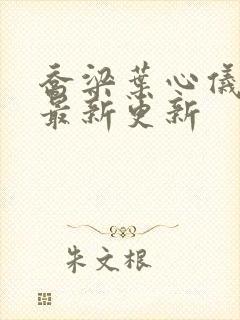 乔梁葉心儀
最新更新
朱文根